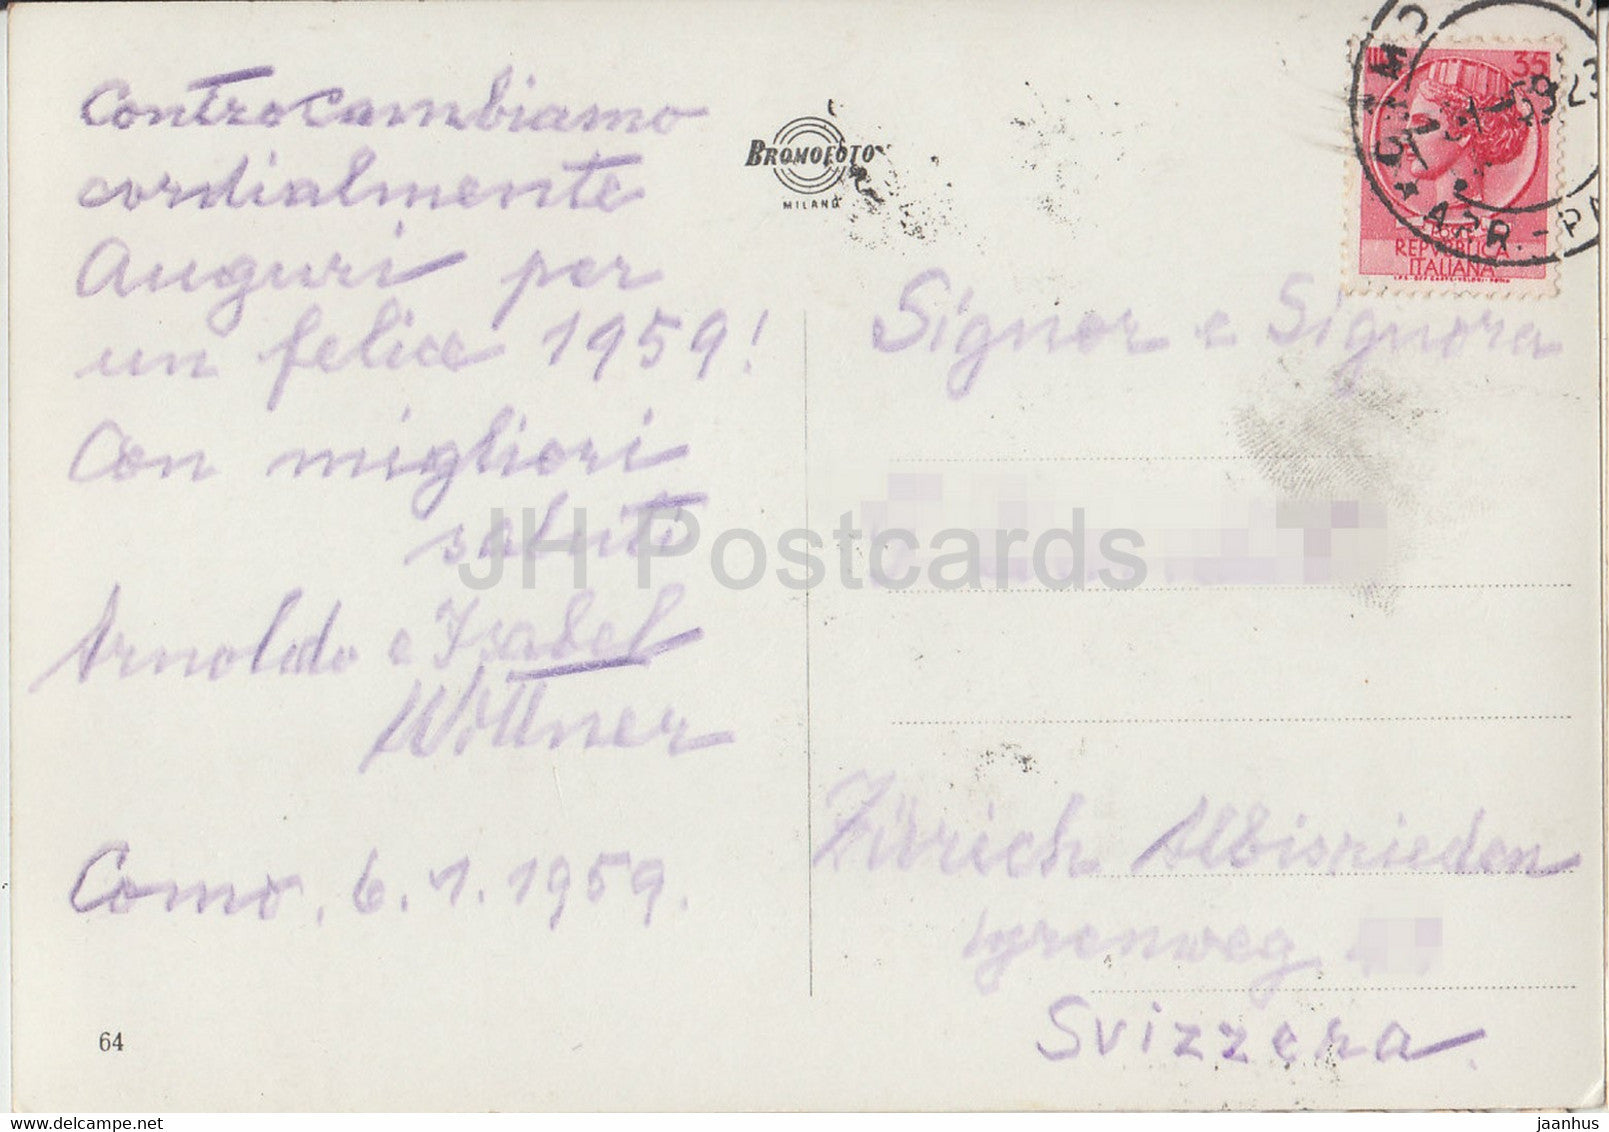 Controcambiamo
cordialmente
Auguri per
un felice 1959!
Con migliori
saluti
Arnoldo e Isabel
Wittner
Como, 6.1.1959.
64
BROMOFOTO
MILANO
35
POSTE
REPVBBLICA
ITALIANA
COMO
ARR.-PA
59 23
Signor e Signora
Zürich Albisrieden
Svizzera
JH Postcards
delcampe.net
jaanhus